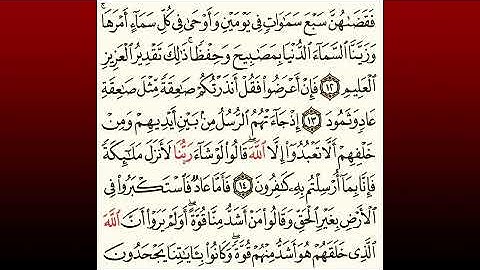 فَقَضَىٰهُنَّ سَبْعَ سَمَٰوَاتٍ فِى يَوْمَيْنِ وَأَوْحَىٰ فِى كُلِّ سَمَآءٍ أَمْرَهَا ۚ
وَزَيَّنَّا ٱلسَّمَآءَ ٱلدُّنْيَا بِمَصَٰبِيحَ وَحِفْظًا ۚ ذَٰلِكَ تَقْدِيرُ ٱلْعَزِيزِ
ٱلْعَلِيمِ ١٢ فَإِنْ أَعْرَضُوا۟ فَقُلْ أَنذَرْتُكُمْ صَٰعِقَةً مِّثْلَ صَٰعِقَةِ
عَادٍ وَثَمُودَ ١٣ إِذْ جَآءَتْهُمُ ٱلرُّسُلُ مِنۢ بَيْنِ أَيْدِيهِمْ وَمِنْ
خَلْفِهِمْ أَلَّا تَعْبُدُوٓا۟ إِلَّا ٱللَّهَ ۖ قَالُوا۟ لَوْ شَآءَ رَبُّنَا لَأَنزَلَ مَلَٰٓئِكَةً
فَإِنَّا بِمَآ أُرْسِلْتُم بِهِۦ كَٰفِرُونَ ١٤ فَأَمَّا عَادٌ فَٱسْتَكْبَرُوا۟ فِى
ٱلْأَرْضِ بِغَيْرِ ٱلْحَقِّ وَقَالُوا۟ مَنْ أَشَدُّ مِنَّا قُوَّةً ۖ أَوَلَمْ يَرَوْا۟ أَنَّ ٱللَّهَ
ٱلَّذِى خَلَقَهُمْ هُوَ أَشَدُّ مِنْهُمْ قُوَّةً ۖ وَكَانُوا۟ بِـَٔايَٰتِنَا يَجْحَدُونَ